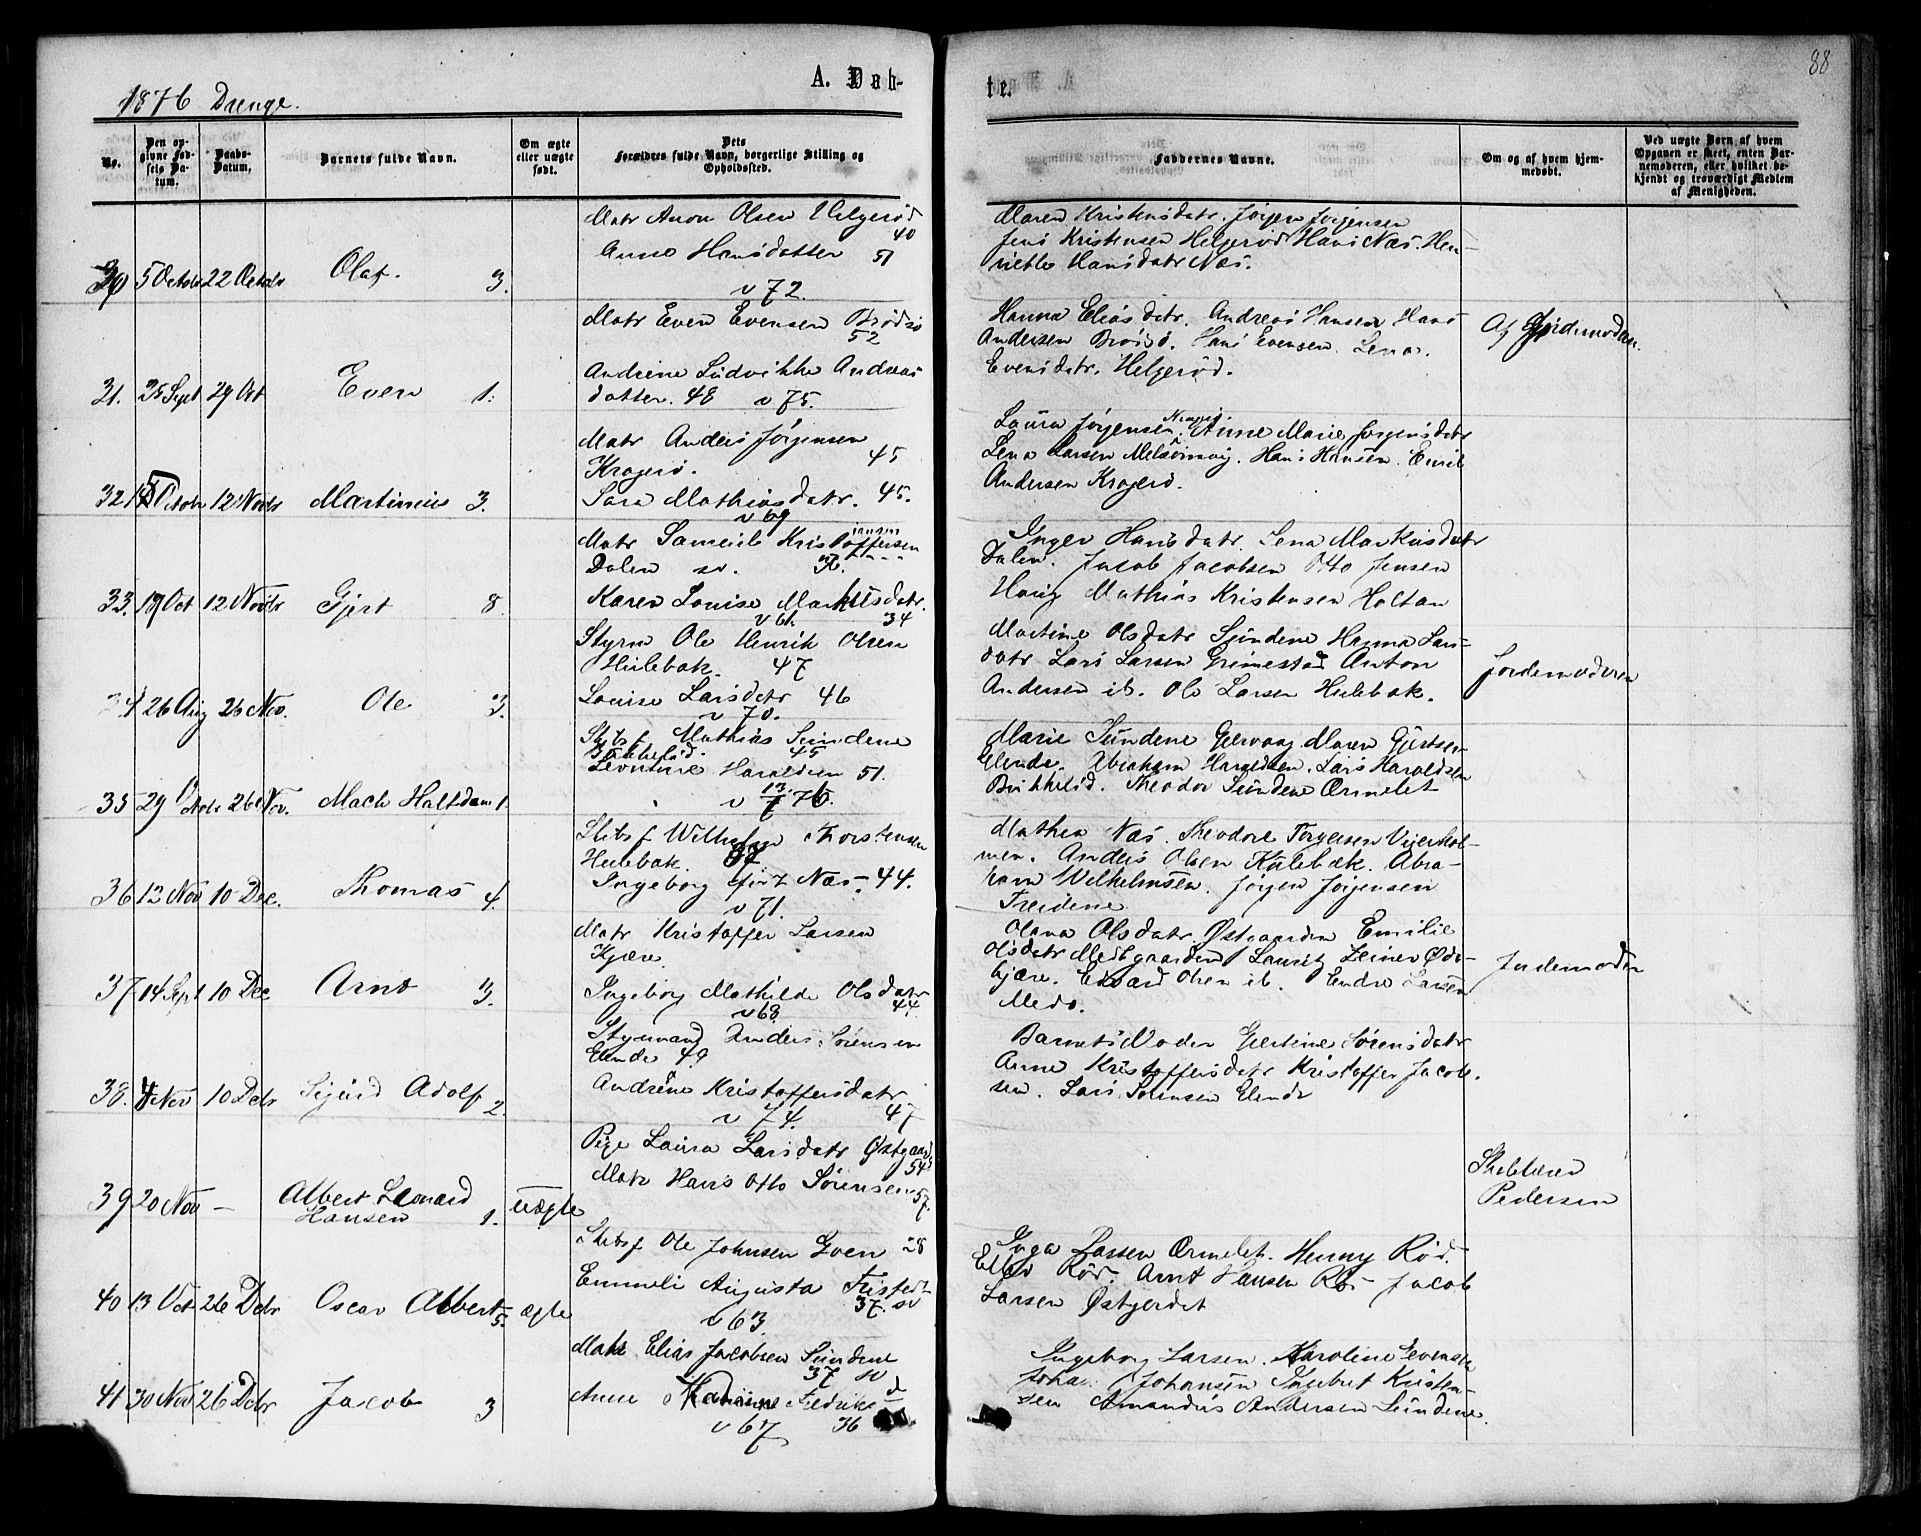 88
1876 Drenge.
A. Døb-
te.
No.
Den op-
givne Fød-
sels Da-
tum.
Daabs-
Datum.
Barnets fulde Navn.
Om ægte
eller uægte
født.
Dets
Forældres fulde Navn, borgerlige Stilling og
Opholdssted.
Faddernes Navne.
Om og af hvem hjem-
medøbt.
Ved uægte Børn af hvem
Opgaven er skeet, enten Bar-
nemoderen, eller hvilket be-
kjendt og troværdigt Medlem
af Menigheden.
30 5 Octobr 22 Octobr Olaf. 3.
Matr Anon Olsen Helgerød
40
Anne Hansdatter 51
v 72.
Maren Kristensdatr. Jørgen Jørgensen
Jens Kristensen Helgerød Hans Næs. Hen-
riette Hansdatr Næs.
31. 25 Sept 29 Oct Even 1.
Matr Even Evensen Brødsø
52
Andrine Ludvikke Andreas
datter. 48 v 75.
Hanna Eliasdatr. Andreas Hansen Hans
Andersen Brøsø. Hans Evensen. Lena
Evensdatr. Helgerød.
Af Gjordemoderen.
32 15 Octobr 12 Novbr Martinius 3.
Matr Anders Jørgensen
Kragerø. 45
Sara Mathiasdatr. 45.
v 69
Laura Jørgensen Anne Marie Jørgensdatr
Lena Larsen Melsomvig. Hans Hansen. Emil
Andersen Kragerø.
33. 19 Oct 12 Novbr Gjert 8.
Matr Samuel Kristoffersen
jensen
Dalen sv. 36.
Karen Louise Markusdatr.
v 61. 34
Inger Hansdatr. Lena Markusdatr
Dalen. Jacob Jacobsen Otto Jensen
Haug Mathias Kristensen Holtan
34 26 Aug 26 Nov. Ole 3.
Styrm Ole Henrik Olsen
Hulebak. 47
Louise Larsdatr 46
v 70.
Martine Olsdatr Sundene Hanna Lars-
datr Lars Larsen Grimestad Anton
Andersen ib. Ole Larsen Hulebak.
Jordemoderen
35 29 Octobr 26 Nov. Mach Halfdan 1.
Skibsf Mathias Sundene
45
Leontine Haraldsen 51.
v 13/7 76.
Marie Sundene Gjervaag Maren Gjertsen
Elende. Abraham Haraldsen. Lars Haraldsen
Birkkelid. Theodor Sundene Ormelet
36 12 Nov 10 Dec. Thomas 4.
Skibsf Wilhelm Thorstensen
Hulebak. 37
Ingeborg født Næs. 44.
v 71.
Mathea Næs. Theodore Torgersen Vejerhol-
men. Anders Olsen Hulebæk. Abra-
ham Wilhelmsen. Jørgen Jørgensen
Treidene
37 14 Sept 10 Dec Arnt 3.
Matr Kristoffer Larsen
Kjære.
Ingeborg Mathilde Olsdatr
v 68 44.
Olava Olsdatr Østgaarden Emilie
Olsdatr Medgaarden Lauritz Zeiner Øde-
kjære. Edvard Olsen ib. Endre Larsen
Medø.
Jordemoder
38. 4 Nov 10 Debr Sigurd Adolf 2.
Styrmand Anders Sørensen
Elende 49
Andrine Kristoffersdatr
v 74. 47
Barnets Moder Gjertine Sørensdatr
Anne Kristoffersdatr Kristoffer Jacob-
sen. Lars Sørensen Elende
39 20 Nov – Albert Leonard
Hansen 1. uægte
Pige Laura Larsdatr Østgaard
54
Matr Hans Otto Sørensen
57.
Skolelærer
Pedersen
40 13 Oct 26 Debr Oscar Albert 5. ægte
Skibsf Ole Johnsen Goen 28
Emmeli Augusta Tristedt
37. sv
v 63.
Inga Larsen Ormelet. Henny Rød.
Ellev Rød. Arnt Hansen Rø Jacob
Larsen Østgerdet
41 30 Nov 26 Debr Jacob 3
Matr Elias Jacobsen Sundene
37 sv
Anne Kathrine Fredriks d
v 67 36
Ingeborg Larsen. Karoline Evensen
Johan Johansen Ingebret Kristen-
sen Amandus Andersen Sundene.